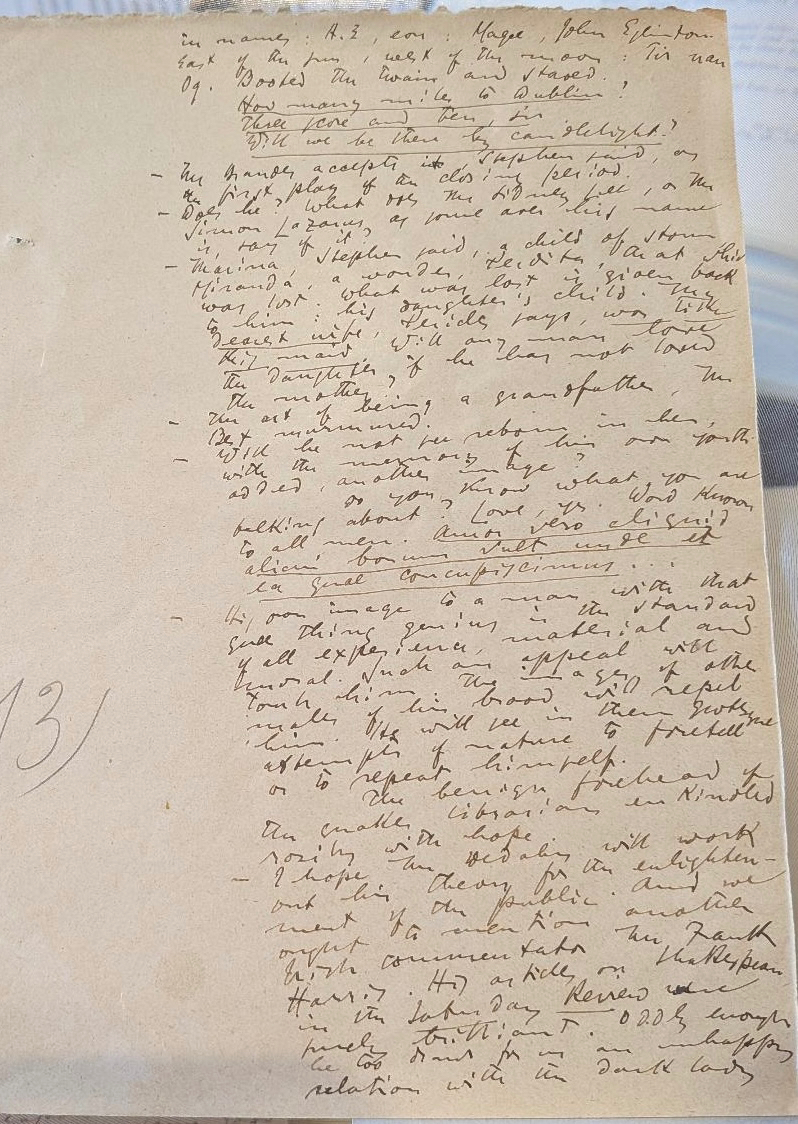 in names: A.E, eon: Magee, John Eglinton.
East of the sun, west of the moon: Tir nan
Og. Booted the twain and staved.
How many miles to Dublin?
Three score and ten, sir
Will we be there by candlelight?
– Mr Brandes accepts it, Stephen said, as
the first play of the closing period.
– Does he? What does Mr Sidney Lee, or Mr
Simon Lazarus, as some aver his name
is, say of it?
– Marina, Stephen said, a child of storm
Miranda, a wonder, Perdita, that which
was lost. What was lost is given back
to him: his daughter's child. My
dearest wife, Pericles says, was like
this maid. Will any man love
the daughter if he has not loved
the mother?
– The art of being a grandfather, Mr
Best murmured.
– Will he not see reborn in her,
with the memory of his own youth
added, another image?
Do you know what you are
talking about? Love, yes. Word known
to all men. Amor vero aliquid
alicui bonum vult unde et
ea quae concupiscimus ...
– His own image to a man with that
queer thing genius is the standard
of all experience, material and
moral. Such an appeal will
touch him. The images of other
males of his brood will repel
him. He will see in them grotesque
attempts of nature to foretell
or to repeat himself.
The benign forehead of
the quaker librarian enkindled
rosily with hope.
– I hope Mr Dedalus will work
out his theory for the enlighten-
ment of the public. And we
ought to mention another
Irish commentator Mr Frank
Harris. His articles on Shakespeare
in the Saturday Review were
surely brilliant. Oddly enough
he too draws for us an unhappy
relation with the dark lady
13)